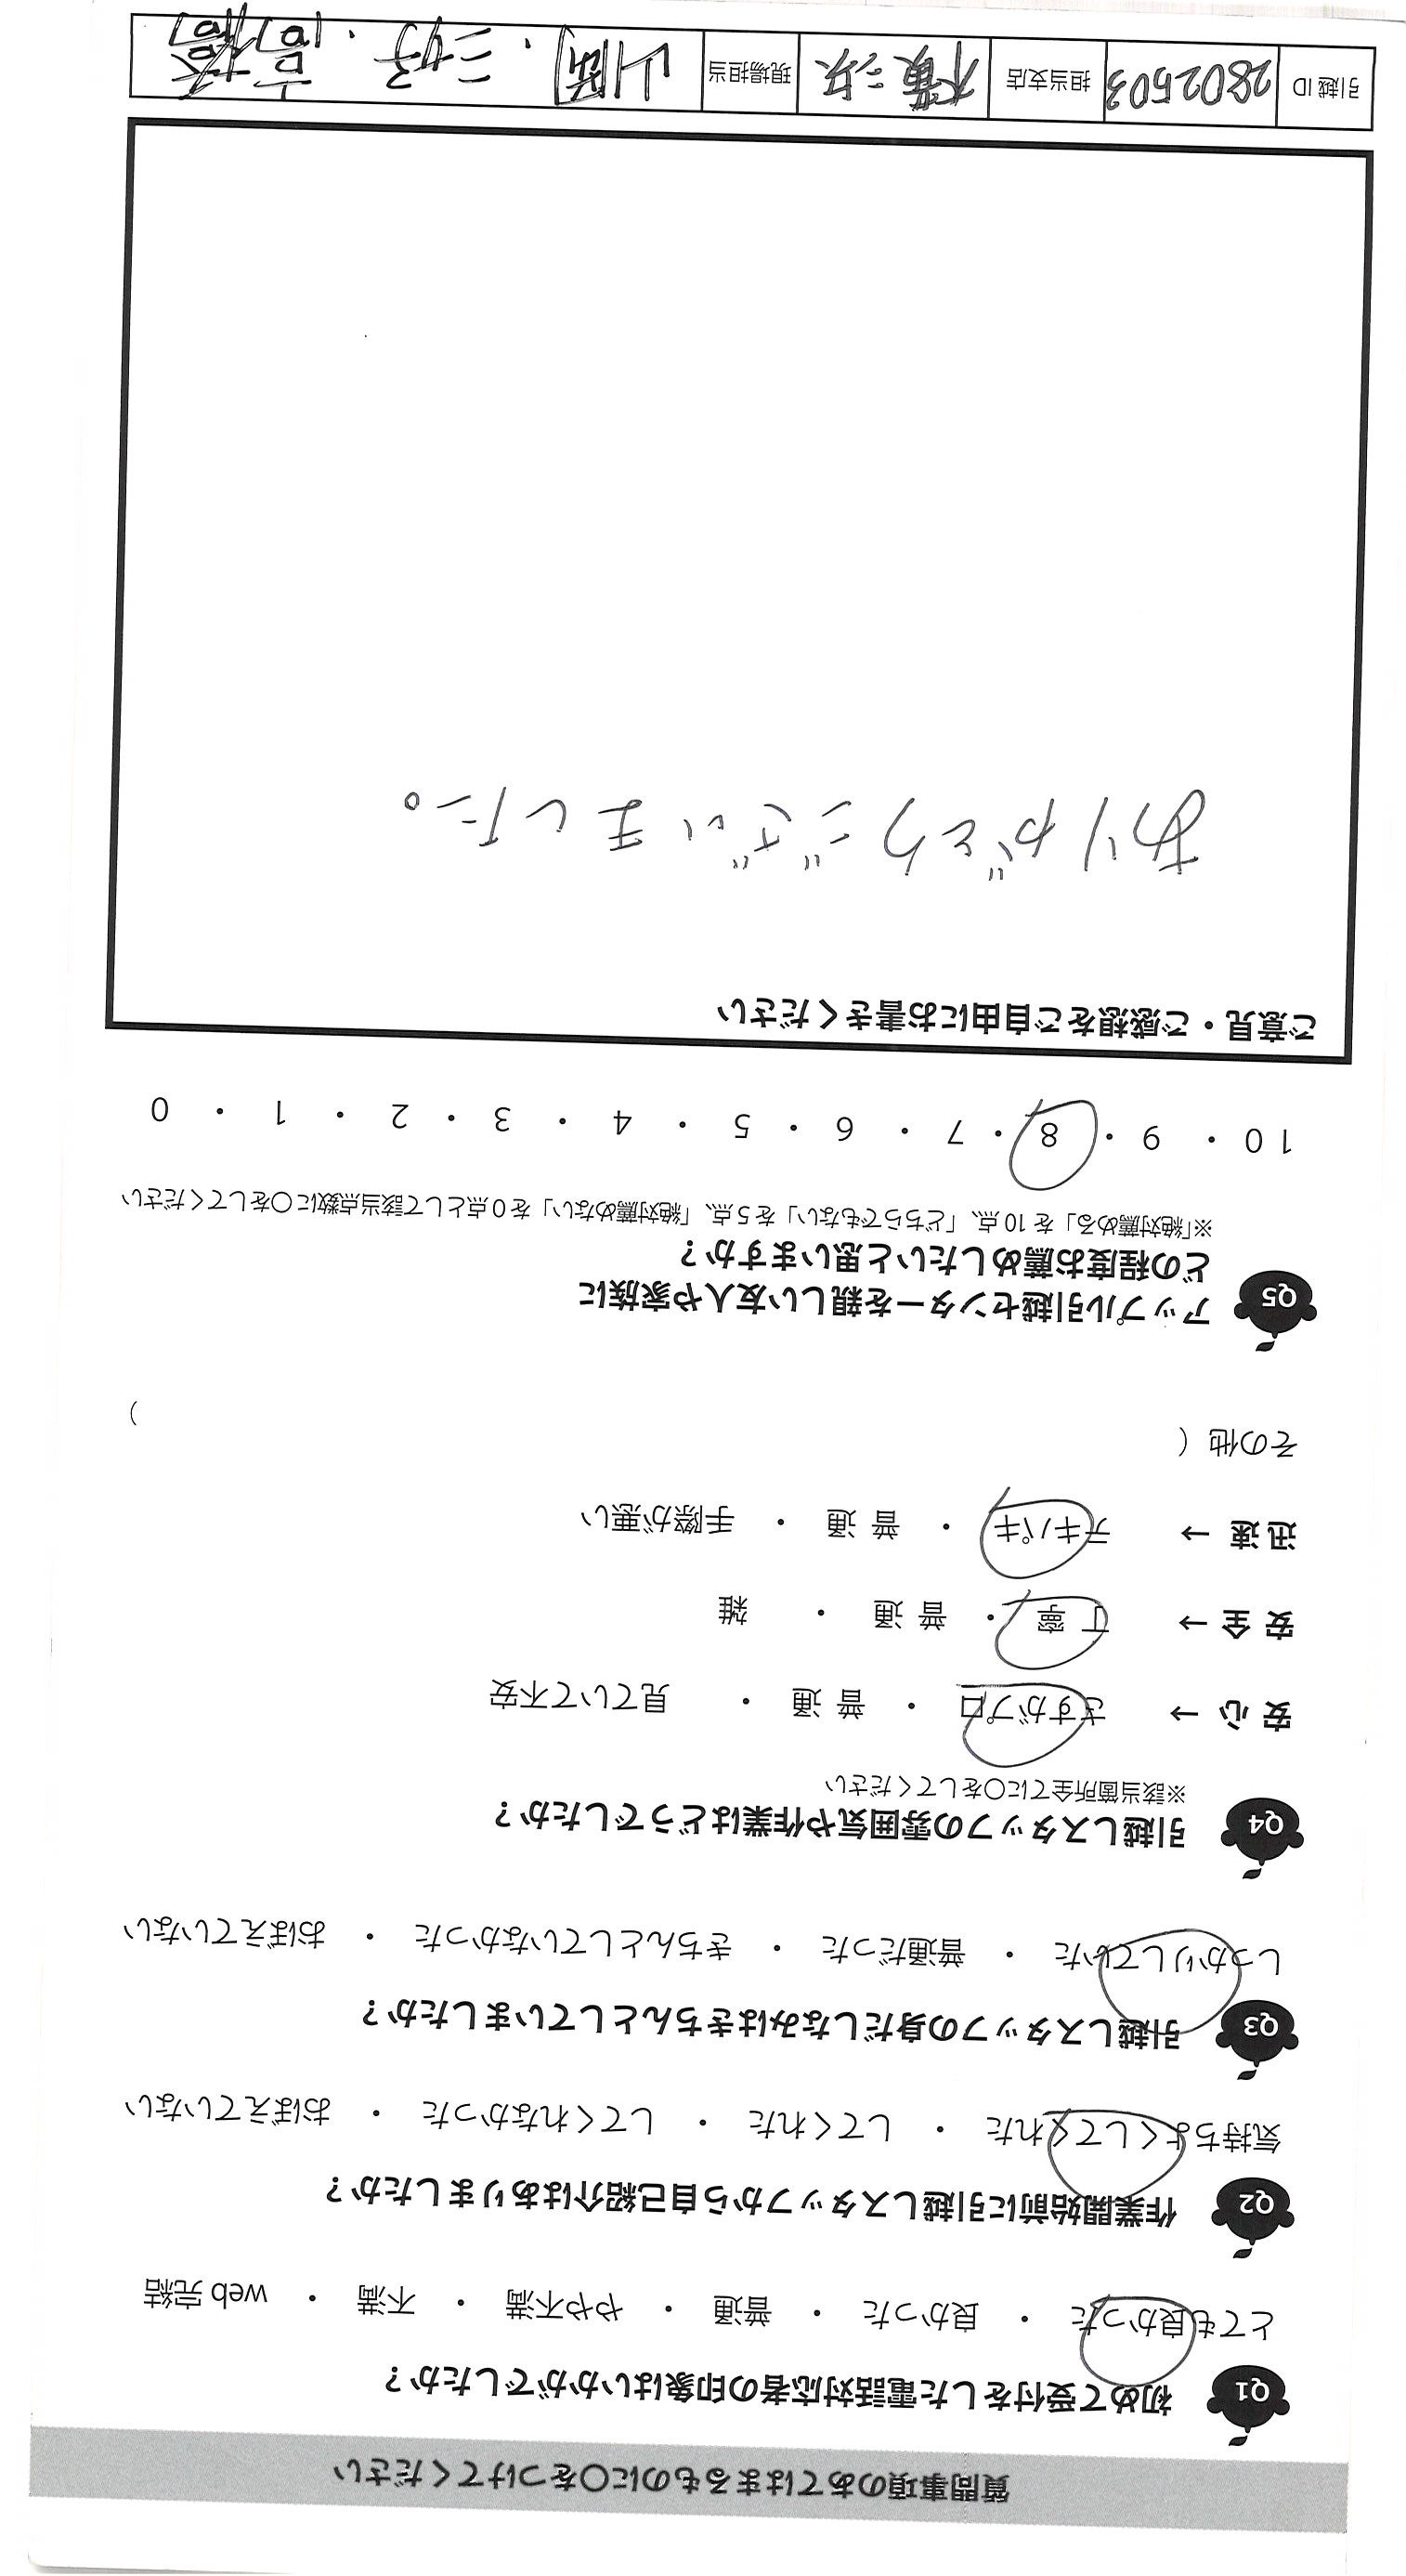 質問事項のあてはまるものに○をつけてください
Q1 初めて受付をした電話対応者の印象はいかがでしたか？
とても良かった ・ 良かった ・ 普通 ・ やや不満 ・ 不満 ・ web 完結
Q2 作業開始前に引越しスタッフから自己紹介はありましたか？
気持ちよくしてくれた ・ してくれた ・ してくれなかった ・ おぼえていない
Q3 引越しスタッフの身だしなみはきちんとしていましたか？
しっかりしていた ・ 普通だった ・ きちんとしていなかった ・ おぼえていない
Q4 引越しスタッフの雰囲気や作業はどうでしたか？
※該当箇所全てに○をしてください
安 心 → さすがプロ ・ 普 通 ・ 見ていて不安
安 全 → 丁 寧 ・ 普 通 ・ 雑
迅 速 → テキパキ ・ 普 通 ・ 手際が悪い
その他（ ）
Q5 アップル引越センターを親しい友人や家族に
どの程度お薦めしたいと思いますか？
※「絶対薦める」を 10 点、「どちらでもない」を 5 点、「絶対薦めない」を 0 点として該当点数に○をしてください
10 ・ 9 ・ 8 ・ 7 ・ 6 ・ 5 ・ 4 ・ 3 ・ 2 ・ 1 ・ 0
ご意見・ご感想をご自由にお書きください
ありがとうございました。
引越 ID 2802503 担当支店 横浜 現場担当 山岡・三好・高橋